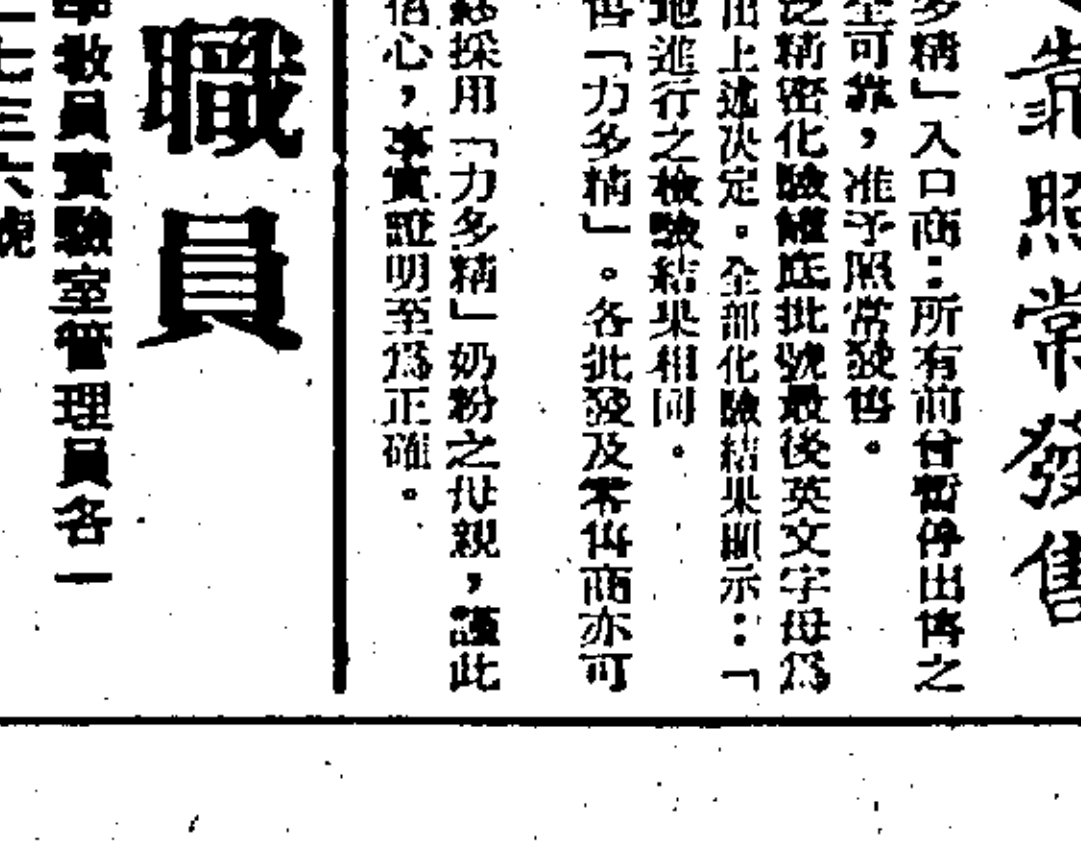 靠照常發售
多精」入口商：所有前曾暫停出售之
全可靠，准予照常發售。
泛精密化驗罐底批號最後英文字母爲
出上述决定。全部化驗結果顯示：「
地進行之檢驗結果相同。
售「力多精」。各批發及零售商亦可
採用「力多精」奶粉之母親，謹此
信心，事實證明至爲正確。
職員
學教員實驗室管理員各一
七三六號